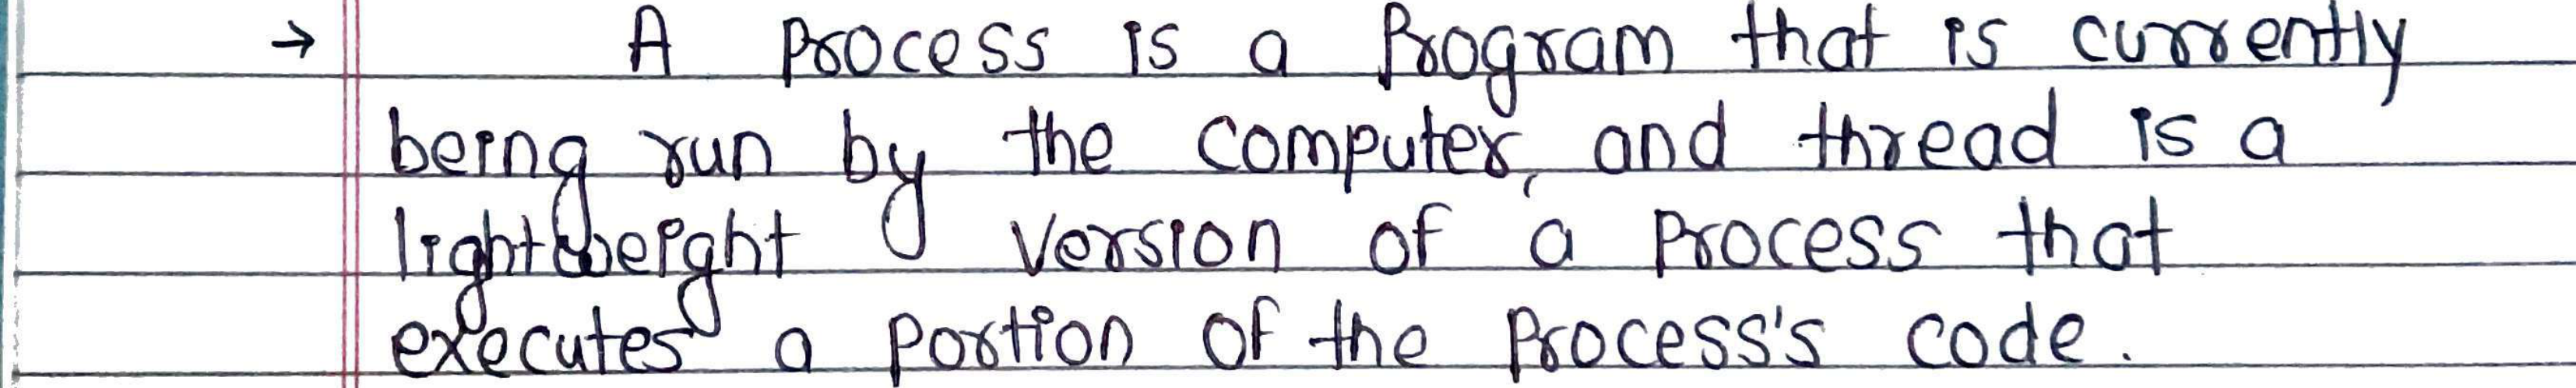 → A process is a Program that is currently
being run by the computer, and thread is a
lightweight version of a process that
executes a portion of the process's code.